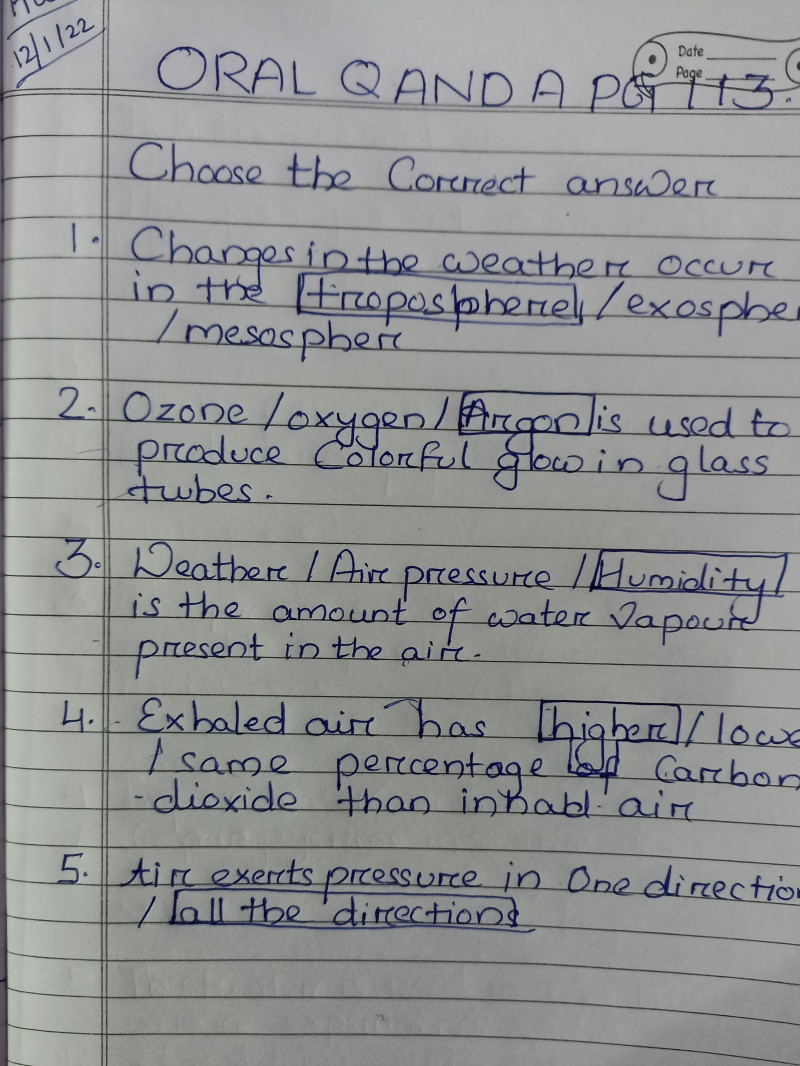 12/1/22
Date
Page
ORAL Q AND A PG 113.
Choose the Correct answer
1. Changes in the weather occur
in the troposphere / exospher
/ mesospher
2. Ozone / oxygen / Argon is used to
produce Colorful glow in glass
tubes.
3. Weather / Air pressure / Humidity
is the amount of water Vapour
present in the air.
4. Exhaled air has higher / lowe
/ same percentage of Carbon
-dioxide than inhald air
5. Air exerts pressure in One directio
/ all the directions